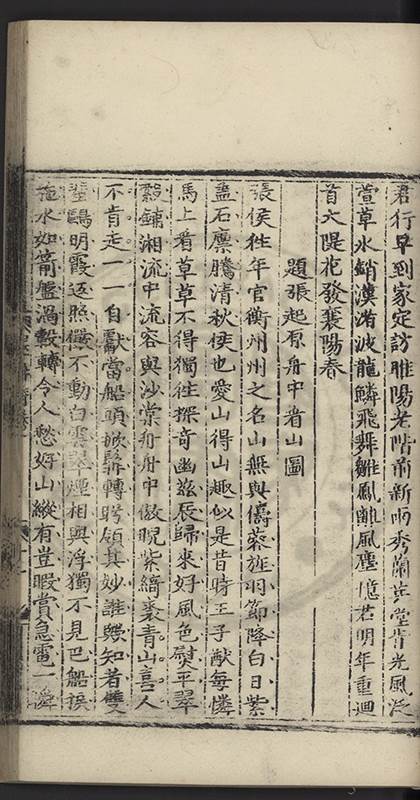 君行早到家定訪睢陽老階前新雨秀蘭芽堂背光風泛
萱草水綃漢渚波龍鱗飛舞雛鳳離風塵憶君明年重迴
首大隄花發襄陽春
題張起原舟中看山圖
張侯往年官衡州州之名山無與儔蔡旌羽節降白日紫
蓋石廩騰清秋侯也愛山得山趣似是昔時王子猷每憐
馬上看草草不得獨往探奇幽茲辰歸來好風色熨平翠
縠鋪湘流中流容與沙棠舟舟中傲睨紫綺裘青山喜人
不肯走一一自獻當船頭掀髯轉眄領其妙誰歟知者雙
鷗明霞返照儼不動白雲翠煙相與浮獨不見巴船楱
水如箭盧渦轂轉令人愁好山縱有豈暇賞急電一瞬